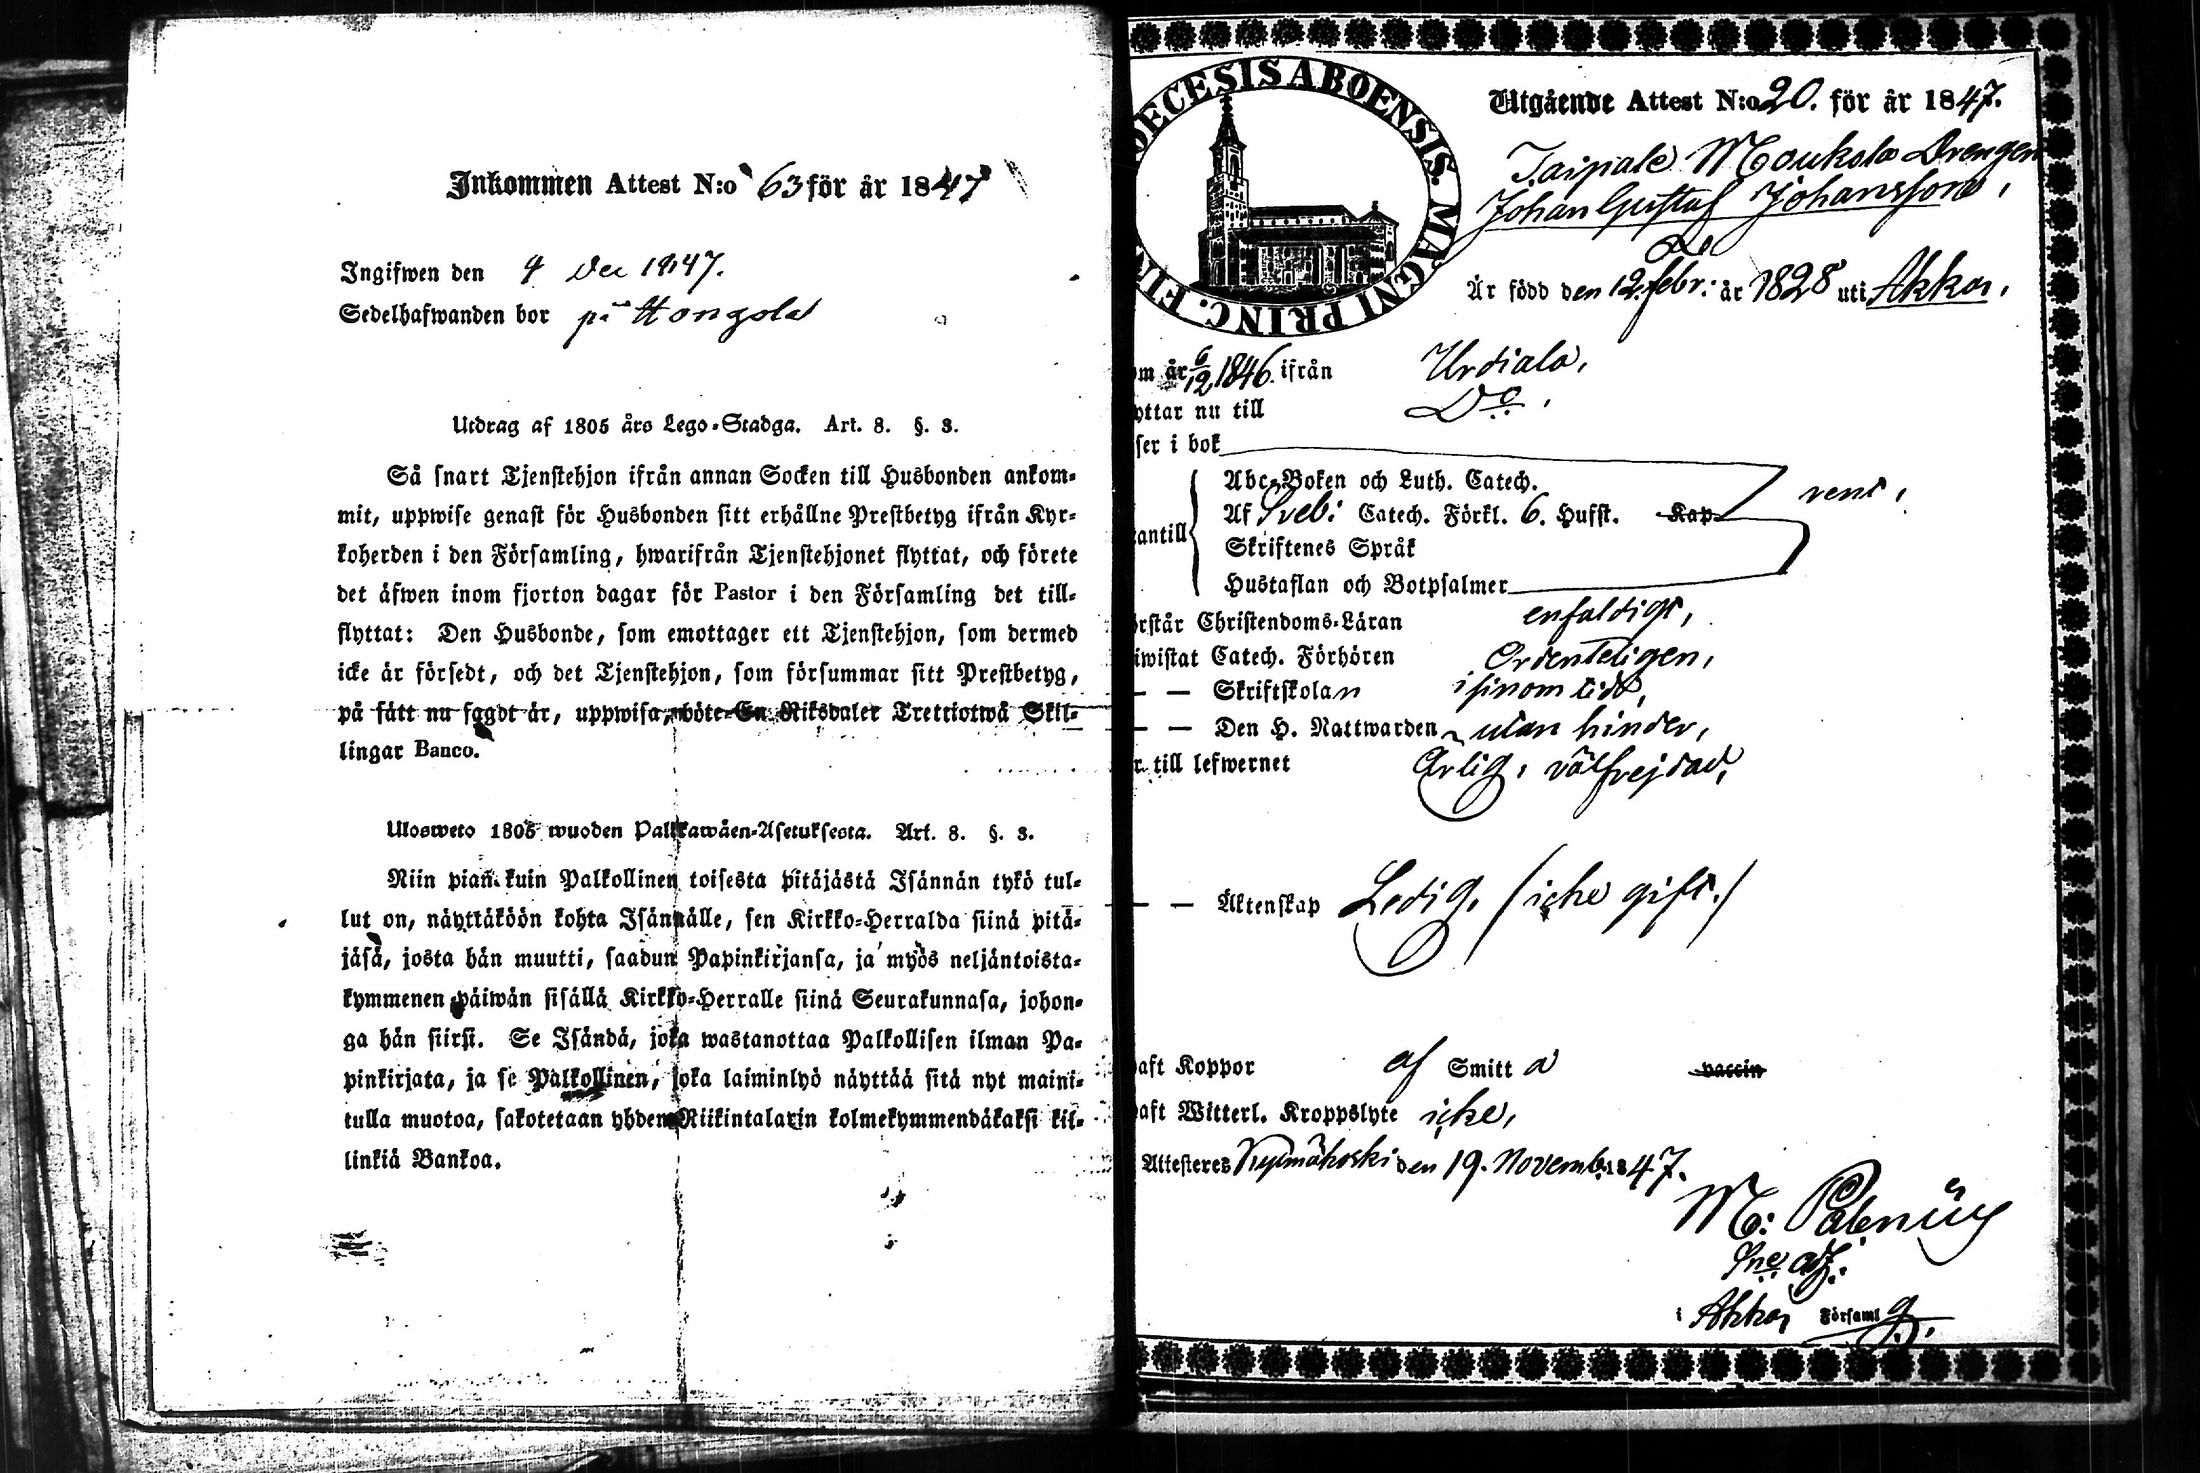 Inkommen Attest N:o 63 för år 1847
Ingifwen den 4 Dec 1847.
Sedelhafwanden bor på Hongola
Utdrag af 1805 års Lego-Stadga. Art. 8. §. 3.
Så snart Tjenstehjon ifrån annan Socken till Husbonden ankom-
mit, uppwise genast för Husbonden sitt erhållne Prestbetyg ifrån Kyr-
koherden i den Församling, hwarifrån Tjenstehjonet flyttat, och förete
det äfwen inom fjorton dagar för Pastor i den Församling det till-
flyttat: Den Husbonde, som emottager ett Tjenstehjon, som dermed
icke är försedt, och det Tjenstehjon, som försummar sitt Prestbetyg,
på sätt nu sagdt är, uppwisa, böte En Riksdaler Trettiotwå Skil-
lingar Banco.
Ulosweto 1805 wuoden Palkkawäen-Asetuksesta. Art. 8. §. 3.
Niin pian kuin Palkollinen toisesta pitäjästä Isännän tykö tul-
lut on, näyttäköön kohta Isännälle, sen Kirkko-Herralda siinä pitä-
jäsä, josta hän muutti, saadun Papinkirjansa, ja myös neljäntoista-
kymmenen päiwän sisällä Kirkko-Herralle siinä Seurakunnasa, johon-
ga hän siirsi. Se Isändä, joka wastanottaa Palkollisen ilman Pa-
pinkirjata, ja se Palkollinen, joka laiminlyö näyttää sitä nyt maini-
tulla muotoa, sakotetaan yhden Riikintalarin kolmekymmendäkaksi kil-
linkiä Bankoa.
DECESIS ABOENSIS. MAGNI PRINC. FIN
Utgående Attest N:o 20. för år 1847.
Taipale Moukola Drengen
Johan Gustaf Johansson,
Är född den 12. febr: år 1828 uti Akkas,
om år 6/12 1846. ifrån Urdiala,
yttar nu till Do.
ser i bok
Abc-Boken och Luth. Catech.
Af Sveb: Catech. Förkl. 6. Hufst. Kap rent,
antill Skriftenes Språk
Hustaflan och Botpsalmer
rstår Christendoms-Läran enfaldigt,
iwistat Catech. Förhören Ordenteligen,
— — Skriftskolan i sinom tid,
— — Den H. Nattwarden utan hinder,
r till lefwernet Ärlig, välfrejdad,
— — Äktenskap Ledig, (icke gift.)
aft Koppor af Smitta vaccin
aft Witterl. Kroppslyte icke,
Attesteres Kylmäkoski den 19. Novemb. 1847.
M:
adj.
i Akkas Församlg.